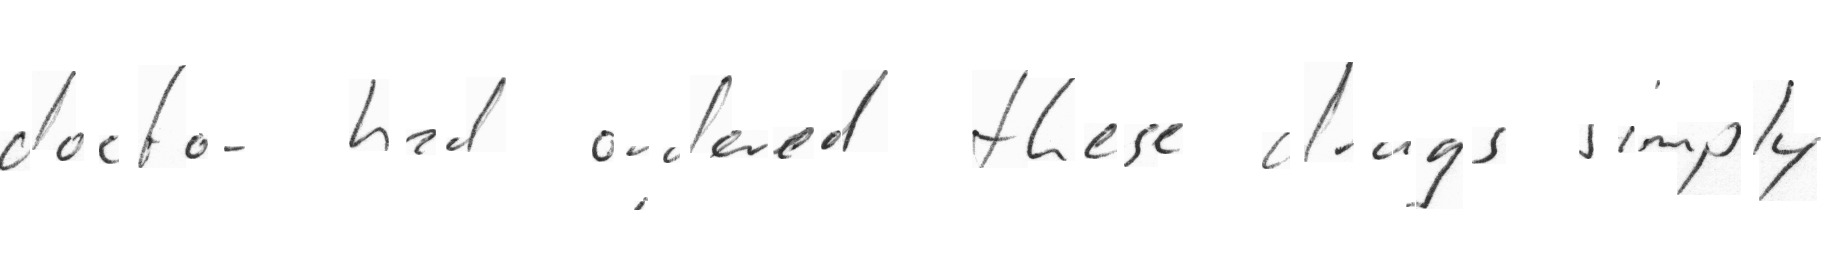 doctor had ordered these drugs simply